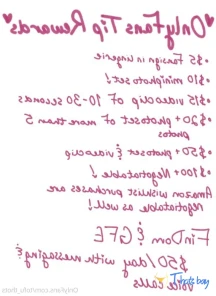 ♥OnlyFans Tip Rewards♥
•$5 Fansign in lingerie
•$10 miniphoto set!
•$15 videoclip of 10-30 seconds
•$20+ photoset of more than 5
photos
•$50+ photoset & videoclip
•$100+ Negotiable!
Amazon wishlist purchases are
Negotiatable as well!
FinDom & GFE
$50/day with messaging &
voice calls